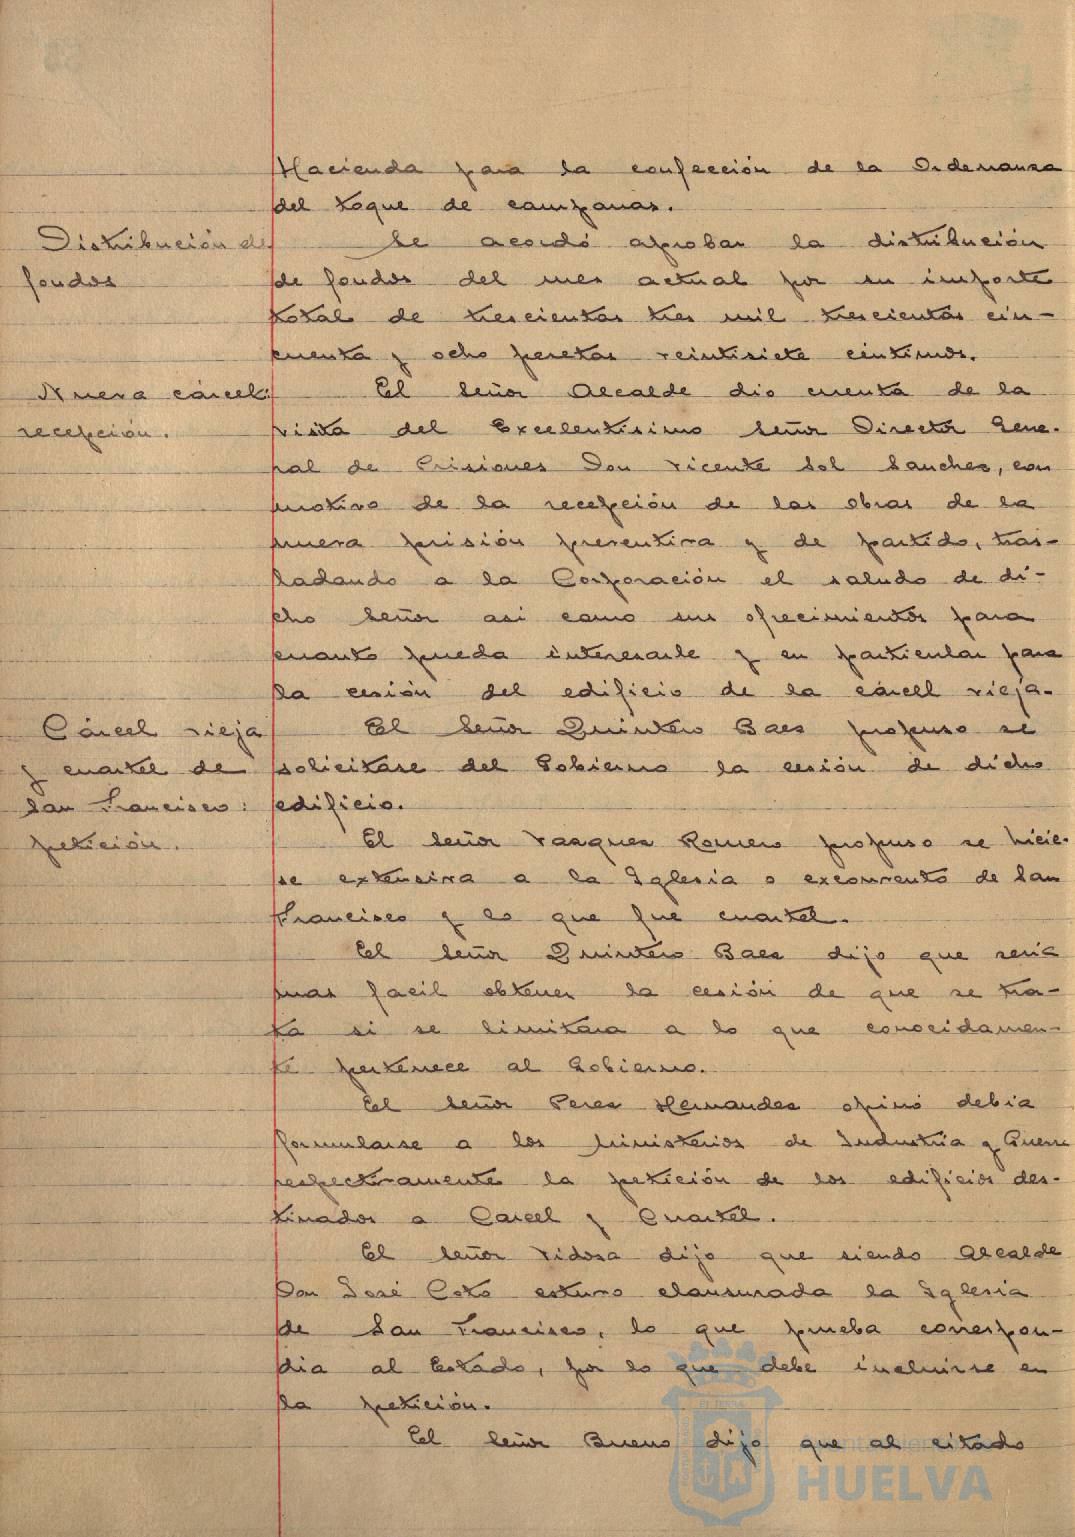 Hacienda para la confección de la Ordenanza
del toque de campanas.
Distribución de
fondos
Se acordó aprobar la distribución
de fondos del mes actual por su importe
total de trescientas tres mil trescientas cin-
cuenta y ocho pesetas veintisiete céntimos.
Nueva cárcel:
recepción.
El Señor Alcalde dio cuenta de la
visita del Excelentísimo Señor Director Gene-
ral de Prisiones Don Vicente Sol Sanchez, con
motivo de la recepción de las obras de la
nueva prisión preventiva y de partido, tras-
ladando a la Corporación el saludo de di-
cho Señor asi como sus ofrecimientos para
cuanto pueda interesarle y en particular para
la cesión del edificio de la cárcel vieja.
Cárcel vieja
y cuartel de
San Francisco:
petición.
El Señor Quintero Baez propuso se
solicitase del Gobierno la cesión de dicho
edificio.
El Señor Vazquez Romero propuso se hicie-
se extensiva a la Iglesia o exconvento de San
Francisco y lo que fue cuartel.
El Señor Quintero Baez dijo que sería
mas facil obtener la cesión de que se tra-
ta si se limitara a lo que conocidamen-
te pertenece al Gobierno.
El Señor Perez Hernandez opinó debia
formularse a los Ministerios de Industria y Guerra
respectivamente la petición de los edificios des-
tinados a Carcel y Cuartel.
El Señor Vidosa dijo que siendo Alcalde
Don José Coto estuvo clausurada la Iglesia
de San Francisco, lo que prueba correspon-
dia al Estado, por lo que debe incluirse en
la petición.
El Señor Bueno dijo que al citado
HUELVA